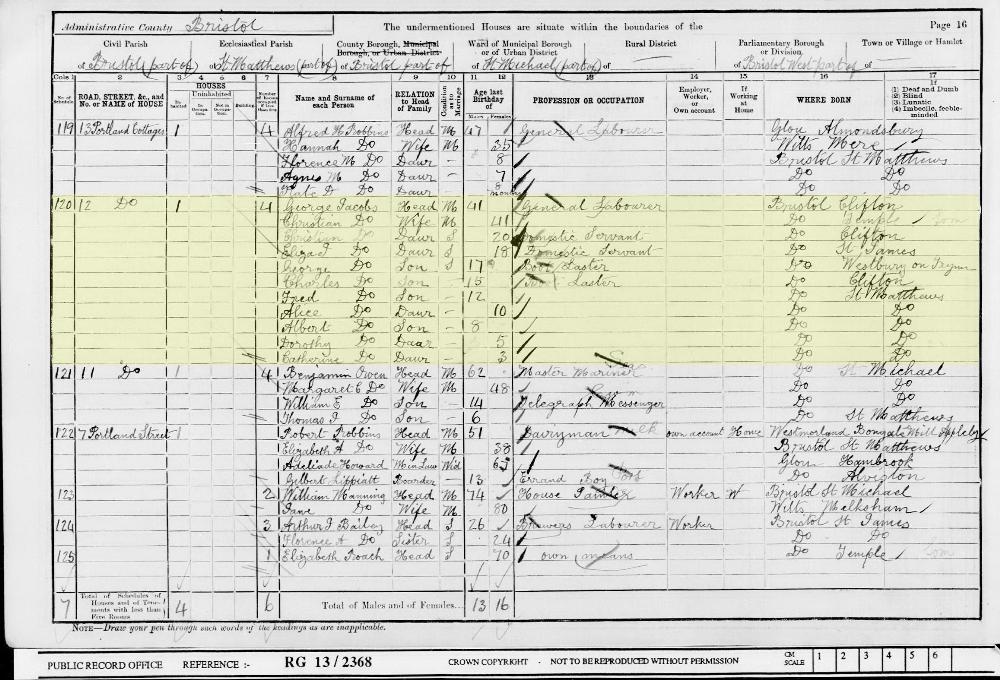 Administrative County Bristol
The undermentioned Houses are situate within the boundaries of the
Page 16
Civil Parish
Ecclesiastical Parish
County Borough, Municipal Borough, or Urban District
Ward of Municipal Borough or of Urban District
Rural District
Parliamentary Borough or Division
Town or Village or Hamlet
of Bristol (part of) of St Matthews (part of) of Bristol part of of St Michael (part of) of of Bristol West part of of
Cols 1 2 3 4 5 6 7 8 9 10 11 12 13 14 15 16 17
No. of Schedule
ROAD, STREET, &c., and No. or NAME of HOUSE
HOUSES
Inhabited
Uninhabited
In Occupation
Not in Occupation
Building
Name and Surname of each Person
RELATION to Head of Family
Condition as to Marriage
Age last Birthday of
Males Females
PROFESSION OR OCCUPATION
Employer, Worker, or Own account
If Working at Home
WHERE BORN
If (1) Deaf and Dumb (2) Blind (3) Lunatic (4) Imbecile, feeble-minded
119 13 Portland Cottages 1 4 Alfred H Robbins Head M 47 General Labourer Glou Almondsbury
Hannah Do Wife M 35 Wilts Mere
Florence M Do Daur — 8 Bristol St Matthews
Agnes M Do Daur — 7 Do Do
Kate A Do Daur — 8 months Do Do
120 12 Do 1 4 George Jacobs Head M 41 General Labourer Bristol Clifton
Christian Do Wife M 41 Do Temple Som
Christian Do Daur S 20 Domestic Servant Do Clifton
Eliza J Do Daur S 18 Domestic Servant Do St James
George Do Son S 17 Boot Laster Do Westbury on Trym
Charles Do Son — 15 Boot Laster Do Clifton
Fred Do Son — 12 Do St Matthews
Alice Do Daur — 10 Do Do
Albert Do Son — 8 Do Do
Dorothy Do Daur — 5 Do Do
Catherine Do Daur — 3 Do Do
121 11 Do 4 Benjamin Owen Head M 62 Master Mariner Do St Michael
Margaret E Do Wife M 48 Do Do
William E Do Son — 14 Telegraph Messenger Do Do
Thomas J Do Son — 6 Do St Matthews
122 7 Portland Street 1 Robert Robbins Head M 51 Dairyman Milk own account Home Westmorland Bongate Appleby
Elizabeth A Do Wife M 38 Bristol St Matthews
Adeliade Howard M in Law Wid 63 Glou Hambrook
Gilbert Lippiatt Boarder — 13 Errand Boy Do Alviston
123 2 William Manning Head M 74 House Painter Worker Bristol St Michael
Jane Do Wife M 80 Wilts Melksham
124 3 Arthur J Bailey Head S 26 Brewers Labourer Worker Bristol St James
Florence A Do Sister S 24 Do Do
125 1 Elizabeth Roach Head S 70 own means Do Temple Som
7 Total of Schedules of Houses and of Tenements with less than Five Rooms 4 6 Total of Males and of Females... 13 16
NOTE—Draw your pen through such words of the headings as are inapplicable.
PUBLIC RECORD OFFICE REFERENCE :- RG 13/2368 CROWN COPYRIGHT - NOT TO BE REPRODUCED WITHOUT PERMISSION CM SCALE 1 2 3 4 5 6